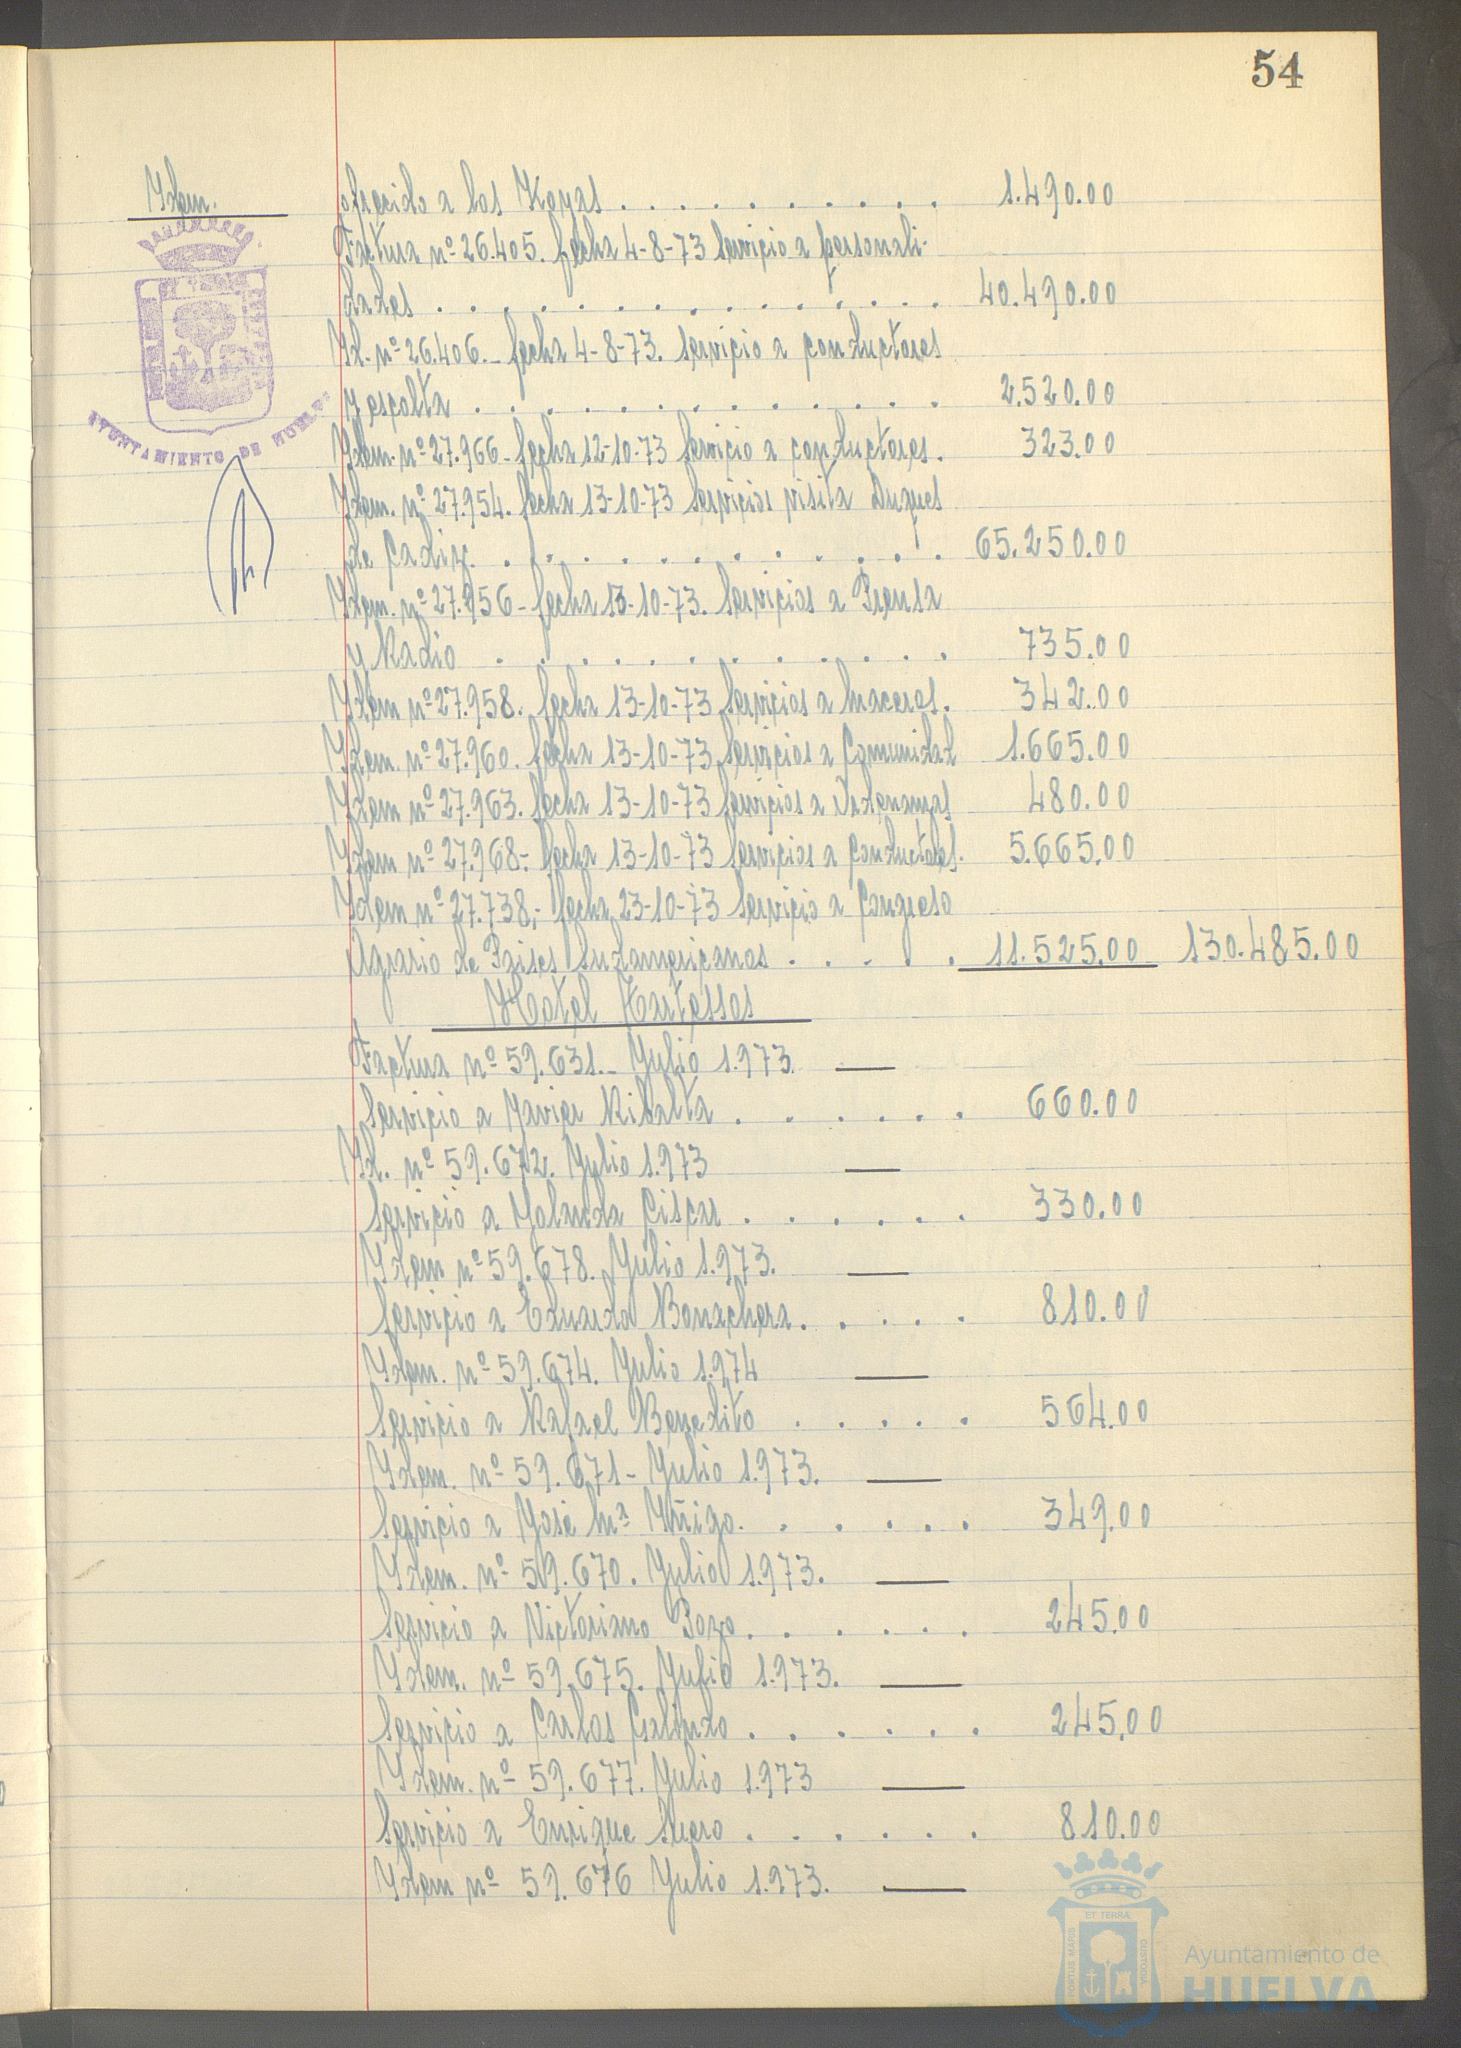 54
Idem.
ofrecido a los Koyas . . . . . . . . . . 1.490.00
Factura nº 26.405. fecha 4-8-73 Servicio a personali-
dades . . . . . . . . . . . . . . 40.490.00
Id. nº 26.406.- fecha 4-8-73. Servicio a conductores
y escolta . . . . . . . . . . . . . 2.520.00
Idem. nº 27.966- fecha 12-10-73 Servicio a conductores. 323.00
Idem. nº 27.954. fecha 13-10-73 Servicios visita Duques
de Cadiz. . . . . . . . . . . . . 65.250.00
Idem. nº 27.956- fecha 13-10-73. Servicios a Prensa
y Radio . . . . . . . . . . . . . 735.00
Idem nº 27.958. fecha 13-10-73 Servicios a maceros. 342.00
Idem. nº 27.960. fecha 13-10-73 Servicios a Comunidad 1.665.00
Idem nº 27.963. fecha 13-10-73 Servicios a Ordenanzas 480.00
Idem nº 27.968.- fecha 13-10-73 Servicios a conductores. 5.665.00
Idem nº 27.738.- fecha 23-10-73 Servicio a Congreso
Agrario de Paises Sudamericanos . . . . . 11.525.00 130.485.00
Hotel Tartessos
Factura nº 59.631.- Julio 1.973. —
Servicio a Javier Ribalta . . . . . . . 660.00
Id. nº 59.672. Julio 1.973 —
Servicio a Yolanda Ciscar . . . . . . . 330.00
Idem nº 59.678. Julio 1.973. —
Servicio a Eduardo Bonachera . . . . . 810.00
Idem. nº 59.674. Julio 1.974 —
Servicio a Rafael Benedito . . . . . 564.00
Idem. nº 59.671- Julio 1.973. —
Servicio a José Mª Iñigo. . . . . . 349.00
Idem. nº 59.670. Julio 1.973. —
Servicio a Victoriano Pozo . . . . . . 245.00
Idem. nº 59.675. Julio 1.973. —
Servicio a Carlos Galindo . . . . . . 245.00
Idem. nº 59.677. Julio 1.973 —
Servicio a Enrique Suero . . . . . . 810.00
Idem nº 59.676 Julio 1.973. —
AYUNTAMIENTO DE HUELVA
PORTUS MARIS
ET TERRA
CUSTODIA
Ayuntamiento de
HUELVA